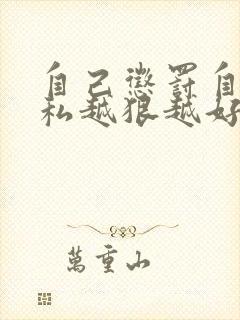 自己懲罰自
私越狠越好
萬重山